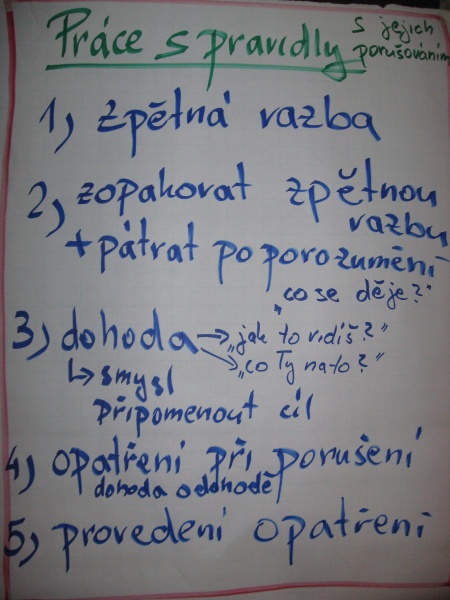 Práce s pravidly
s jejich
porušováním
1) zpětná vazba
2) zopakovat zpětnou
vazbu
+ pátrat po porozumění
„co se děje?"
3) dohoda → „jak to vidíš?"
→ „co Ty na to?"
↳ smysl
připomenout cíl
4) opatření při porušení
dohoda o dohodě
5) provedení opatření